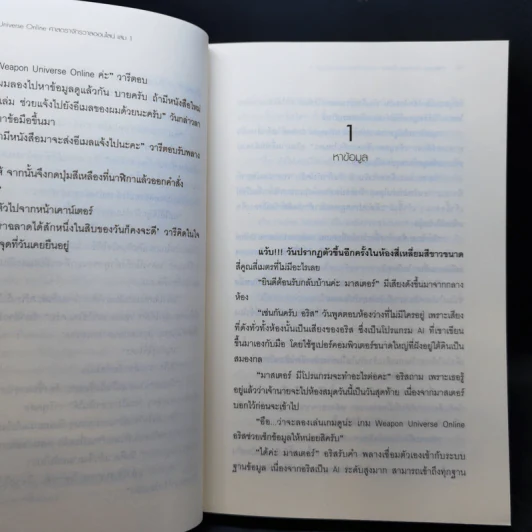 Universe Online ศาสตราจักรวาลออนไลน์ เล่ม 1
Weapon Universe Online ค่ะ" วารีตอบ
ผมลองไปหาข้อมูลดูแล้วกัน บายครับ ถ้ามีหนังสือใหม่
เล่ม ช่วยแจ้งไปยังอีเมลของผมด้วยนะครับ" วันกล่าวลา
าข้อมือขึ้นมา
ามีหนังสือมาจะส่งอีเมลแจ้งไปนะคะ" วารีตอบรับพลาง
จากนั้นจึงกดปุ่มสีเหลืองที่นาฬิกาแล้วออกคำสั่ง
ตัวไปจากหน้าเคาน์เตอร์
าฉลาดได้สักหนึ่งในสิบของวันก็คงจะดี' วารีคิดในใจ
จุดที่วันเคยยืนอยู่
1
หาข้อมูล
แว้บ!!! วันปรากฏตัวขึ้นอีกครั้งในห้องสี่เหลี่ยมสีขาวขนาด
สี่คูณสี่เมตรที่ไม่มีอะไรเลย
"ยินดีต้อนรับกลับบ้านค่ะ มาสเตอร์" มีเสียงดังขึ้นมาจากกลาง
ห้อง
"เช่นกันครับ อริส" วันพูดตอบห้องว่างที่ไม่มีใครอยู่ เพราะเสียง
ที่ดังทั่วทั้งห้องนั้นเป็นเสียงของอริส ซึ่งเป็นโปรแกรม AI ที่เขาเขียน
ขึ้นมาเองกับมือ โดยใช้ซูเปอร์คอมพิวเตอร์ขนาดใหญ่ที่ฝังอยู่ใต้ดินเป็น
สมองกล
"มาสเตอร์ มีโปรแกรมจะทำอะไรต่อคะ" อริสถาม เพราะเธอรู้
อยู่แล้วว่าเจ้านายจะไปห้องสมุดวันนี้เป็นวันสุดท้าย เนื่องจากมาสเตอร์
บอกไว้ก่อนจะเข้าไป
"อือ...ว่าจะลองเล่นเกมดูน่ะ เกม Weapon Universe Online
อริสช่วยเช็กข้อมูลให้หน่อยสิครับ"
"ได้ค่ะ มาสเตอร์" อริสรับคำ พลางเชื่อมตัวเองเข้ากับระบบ
ฐานข้อมูล เนื่องจากอริสเป็น AI ระดับสูงมาก สามารถเข้าถึงทุกฐาน